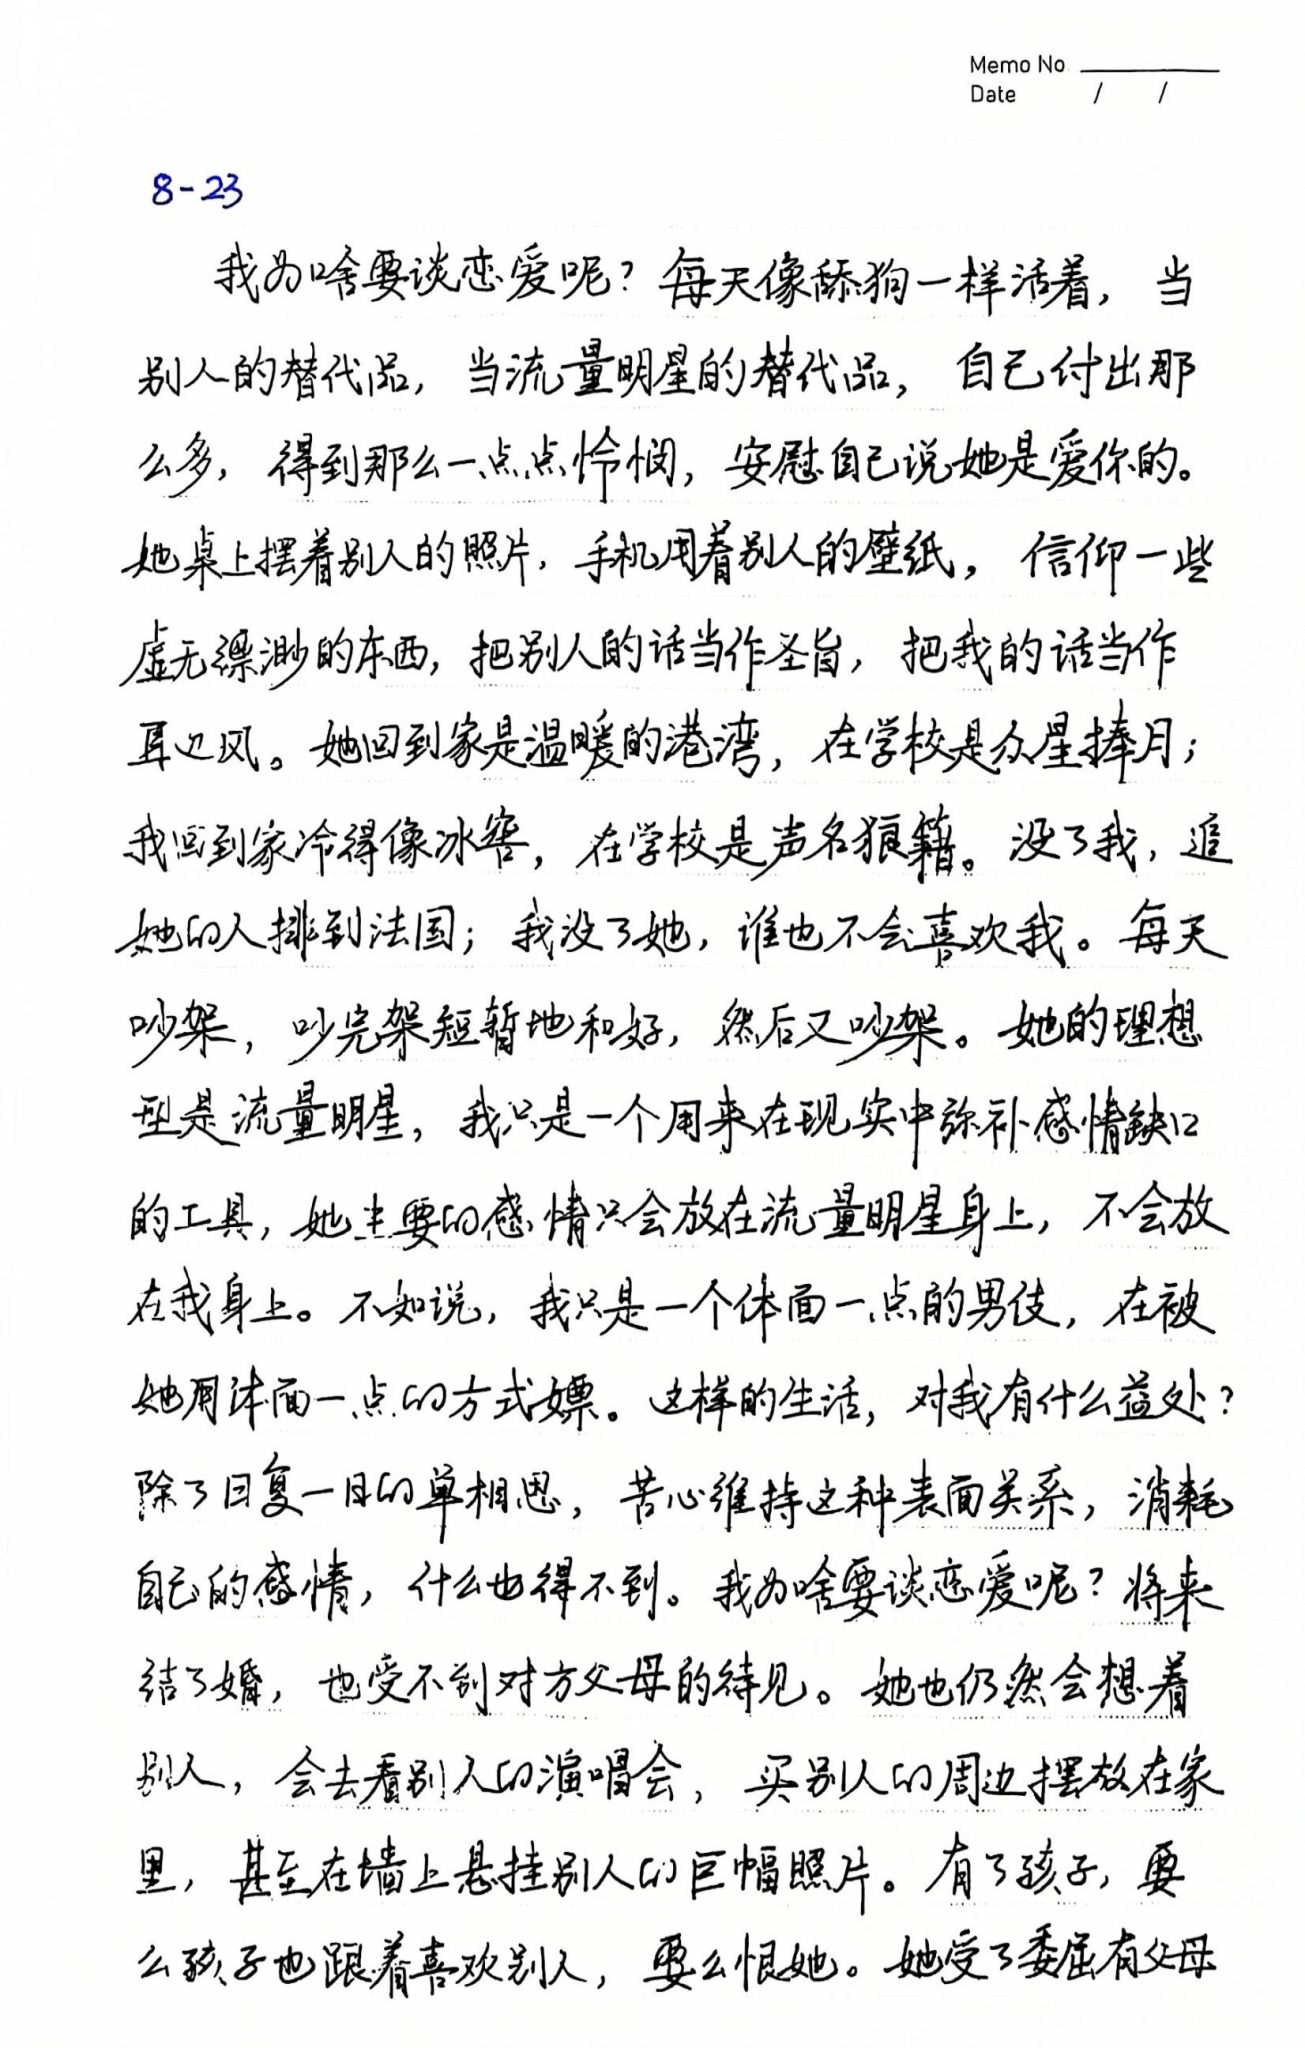 Memo No
Date / /
8-23
我为啥要谈恋爱呢？每天像舔狗一样活着，当
别人的替代品，当流量明星的替代品，自己付出那
么多，得到那么一点点怜悯，安慰自己说她是爱你的。
她桌上摆着别人的照片，手机用着别人的壁纸，信仰一些
虚无缥渺的东西，把别人的话当作圣旨，把我的话当作
耳边风。她回到家是温暖的港湾，在学校是众星捧月；
我回到家冷得像冰窖，在学校是声名狼籍。没了我，追
她的人排到法国；我没了她，谁也不会喜欢我。每天
吵架，吵完架短暂地和好，然后又吵架。她的理想
型是流量明星，我只是一个用来在现实中弥补感情缺口
的工具，她主要的感情只会放在流量明星身上，不会放
在我身上。不如说，我只是一个体面一点的男伎，在被
她用体面一点的方式嫖。这样的生活，对我有什么益处？
除了日复一日的单相思，苦心维持这种表面关系，消耗
自己的感情，什么也得不到。我为啥要谈恋爱呢？将来
结了婚，也受不到对方父母的待见。她也仍然会想着
别人，会去看别人的演唱会，买别人的周边摆放在家
里，甚至在墙上悬挂别人的巨幅照片。有了孩子，要
么孩子也跟着喜欢别人，要么恨她。她受了委屈有父母